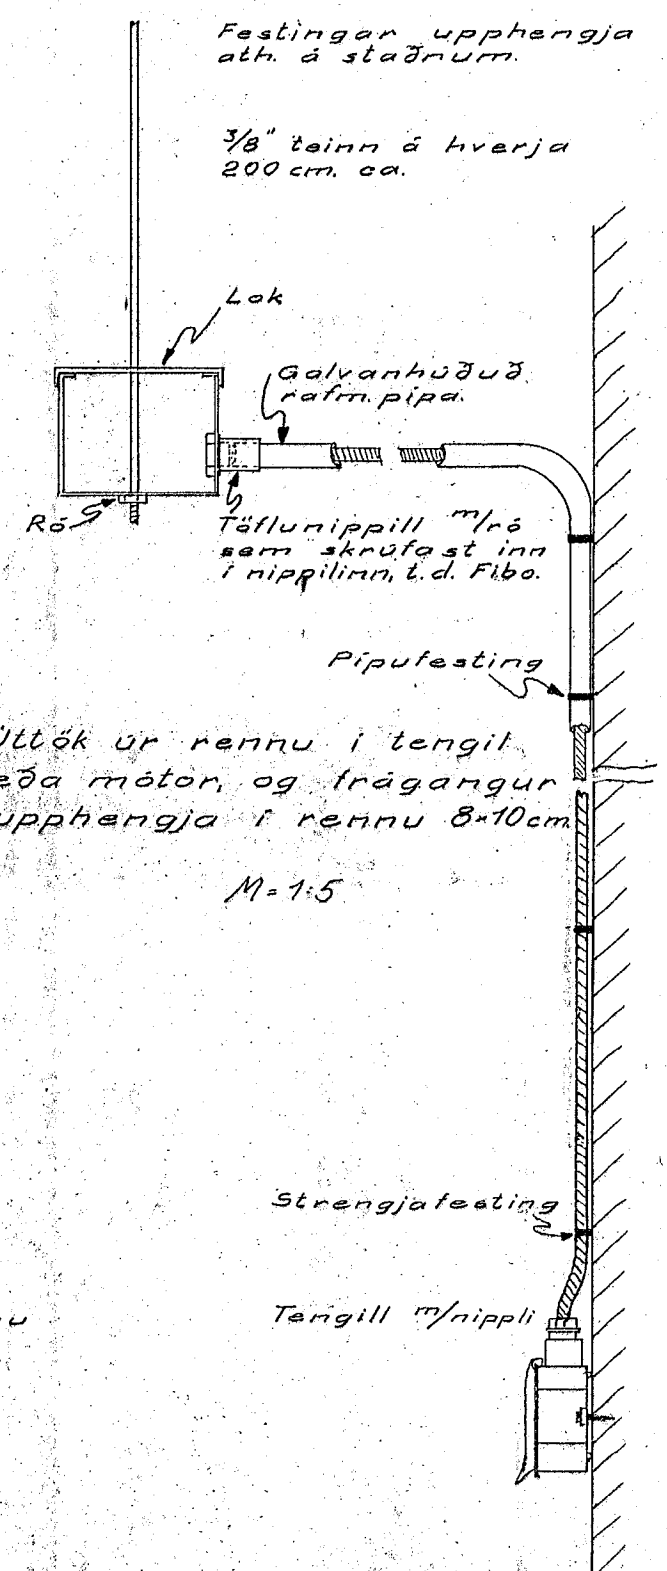 Festingar upphengja
ath. á staðnum.
3/8" teinn á hverja
200 cm. ca.
Lok
Galvanhúðuð
rafm. pípa.
Ró
Töflunippill m/ró
sem skrúfast inn
í nippilinn, t.d. Fibo.
Pípufesting
Úttök úr rennu í tengil
eða mótor, og frágangur
upphengja í rennu 8×10cm
M=1:5
Strengjafesting
Tengill m/nippli